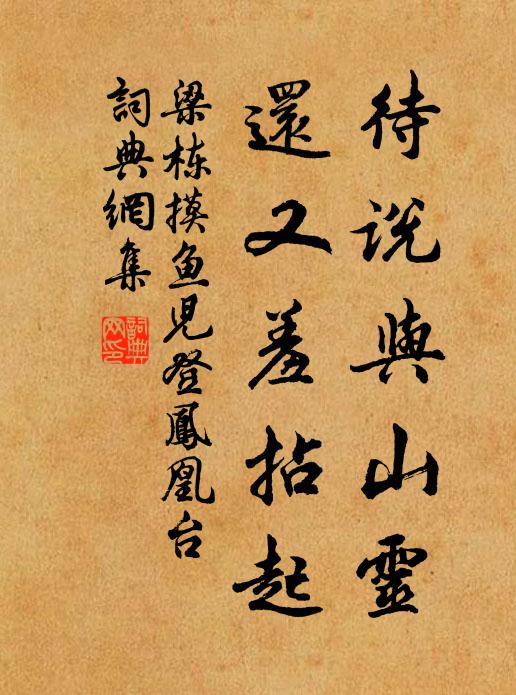 待説與山靈
還又羞拈起
梁栋摸鱼児登鳳凰台
詞典網集
詞典
网印